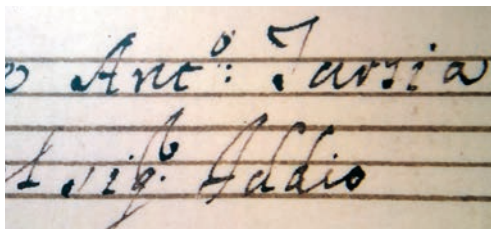 o Ant.º: Tarsia
A Sig.ᵃ Addio